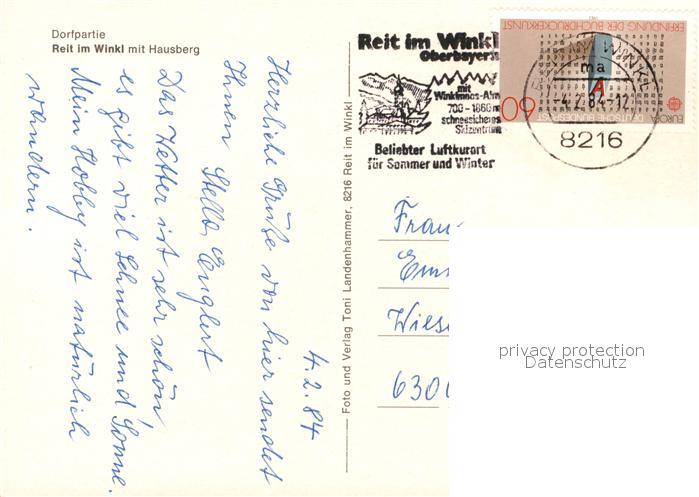 Dorfpartie
Reit im Winkl mit Hausberg
4.2.84
Herzliche Grüße von hier sendet
Ihnen Stella Englert
Das Wetter ist sehr schön
es gibt viel Schnee und Sonne.
Mein Hobby ist natürlich
wandern.
Foto und Verlag Toni Landenhammer, 8216 Reit im Winkl
Reit im Winkl
Oberbayern
mit
Winklmoos-Alm
700-1860m
schneesicheres
Skizentrum
Beliebter Luftkurort
für Sommer und Winter
ERFINDUNG DER BUCHDRUCKERKUNST
60
EUROPA DEUTSCHE BUNDESPOST
A
ma
-4.2.84-12
8216
Frau
Wies
630
privacy protection
Datenschutz